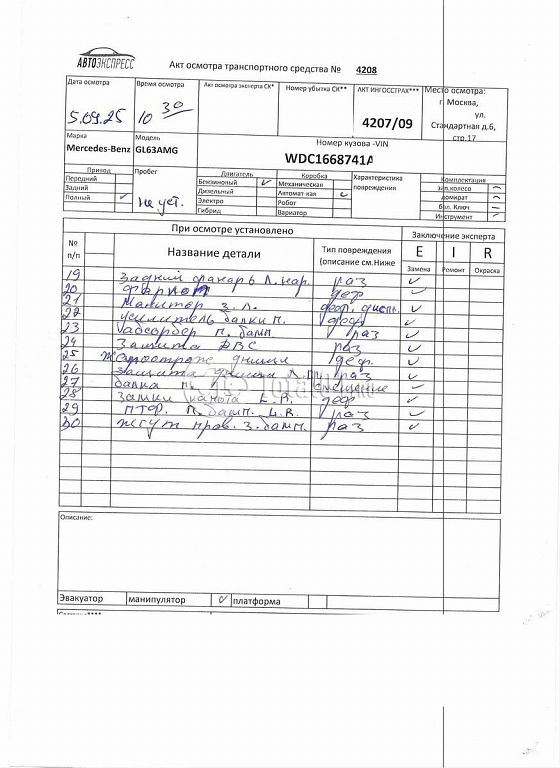 АВТОЭКСПРЕСС
Акт осмотра транспортного средства № 4208
Дата осмотра
Время осмотра
Акт осмотра эксперта СК*
Номер убытка СК**
АКТ ИНГОССТРАХ***
Место осмотра:
г. Москва,
ул.
Стандартная д.6,
стр.17
5.09.25
10 30
4207/09
Марка
Модель
Номер кузова -VIN
Mercedes-Benz
GL63AMG
WDC1668741A
Привод
Пробег
Двигатель
Коробка
Характеристика
повреждения
Комплектация
Передний
Бензиновый
Механическая
зап.колесо
Задний
Дизельный
Автомат-кая
домкрат
Полный
не уст.
Электро
Робот
бал. Ключ
Гибрид
Вариатор
Инструмент
При осмотре установлено
Заключение эксперта
№
п/п
Название детали
Тип повреждения
(описание см.Ниже
E I R
Замена Ремонт Окраска
19 Задний фонарь Л. нар. раз
20 Фаркоп деф
21 Монитор з. Л. деф. дисп.
22 Усилитель балки п. деф
23 Абсорбер п. бамп. раз
24 Защита ДВС раз
25 днища деф.
26 Защита днища Л. раз
27 балка п. смещение
28 Замки капота L.R. деф
29 ПТФ. п. бамп. L.R. раз
30 Жгут пров. з. бамп. раз
Описание:
Эвакуатор
манипулятор
платформа